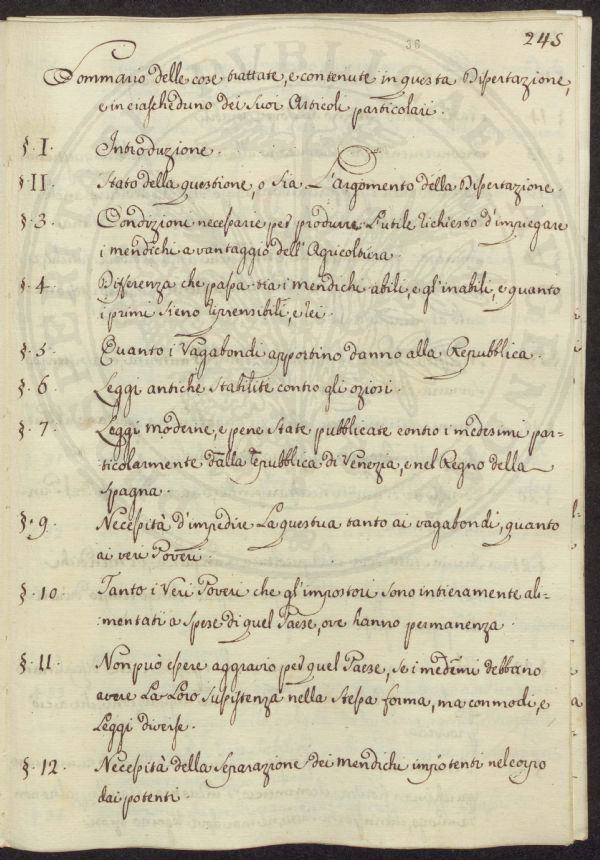 36
245
Sommario delle cose trattate, e contenute in questa Dissertazione,
e in ciascheduno dei Suoi Articoli particolari.
§. I. Introduzione.
§. II. Stato della questione, o sia L'argomento della Dissertazione.
§. 3. Condizioni necessarie per produrre L'utile richiesto d'impiegare
i mendichi a vantaggio dell'Agricoltura.
§. 4. Differenza che passa tra i mendichi abili, e gl'inabili, e quanto
i primi sieno riprensibili, e rei.
§. 5. Quanto i Vagabondi apportino danno alla Repubblica.
§. 6. Leggi antiche stabilite contro gli oziosi.
§. 7. Leggi moderne, e pene state pubblicate contro i medesimi par-
ticolarmente dalla repubblica di Venezia, e nel Regno della
Spagna.
§. 9. Necessità d'impedire La questua tanto ai vagabondi, quanto
ai veri Poveri.
§. 10. Tanto i Veri Poveri che gl'impostori sono intieramente ali-
mentati a spese di quel Paese, ove hanno permanenza.
§. 11. Non può essere aggravio per quel Paese, se i medemi debbano
avere La Loro sussistenza nella stessa forma, ma con modi, e
Leggi diverse.
§. 12. Necessità della separazione dei mendichi impotenti nel corpo
dai potenti.